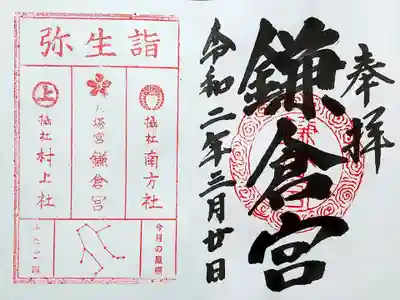 奉拝
鎌倉宮
令和二年三月廿日
弥生詣
摂社 南方社
大塔宮 鎌倉宮
上
摂社 村上社
今月の星座
ふたご座